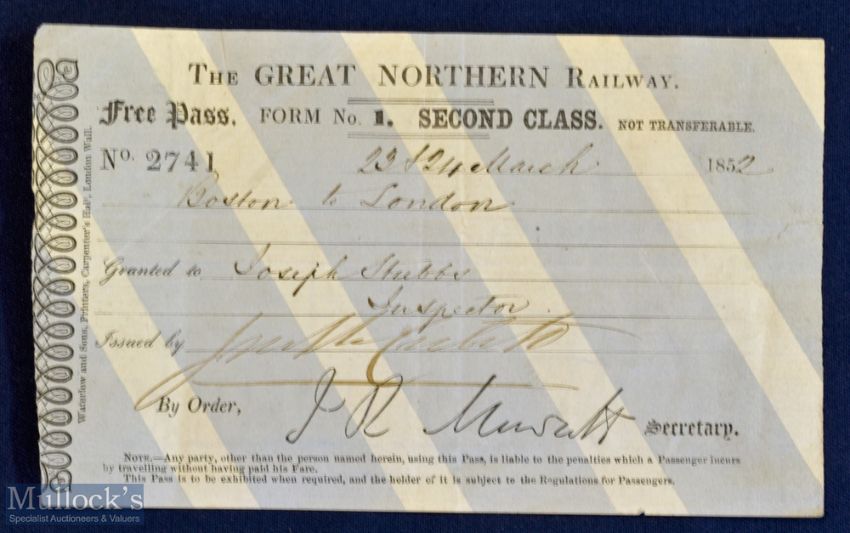 THE GREAT NORTHERN RAILWAY.
Free Pass. FORM No. 1. SECOND CLASS. NOT TRANSFERABLE.
No. 2741 23 & 24 March 1852
Boston to London
Granted to Joseph Stubbs
Inspector.
Issued by
By Order, J R Mowatt Secretary.
NOTE.—Any party, other than the person named herein, using this Pass, is liable to the penalties which a Passenger incurs
by travelling without having paid his Fare.
This Pass is to be exhibited when required, and the holder of it is subject to the Regulations for Passengers.
Waterlow and Sons, Printers, Carpenter's Hall, London Wall.
Mullock's
Specialist Auctioneers & Valuers